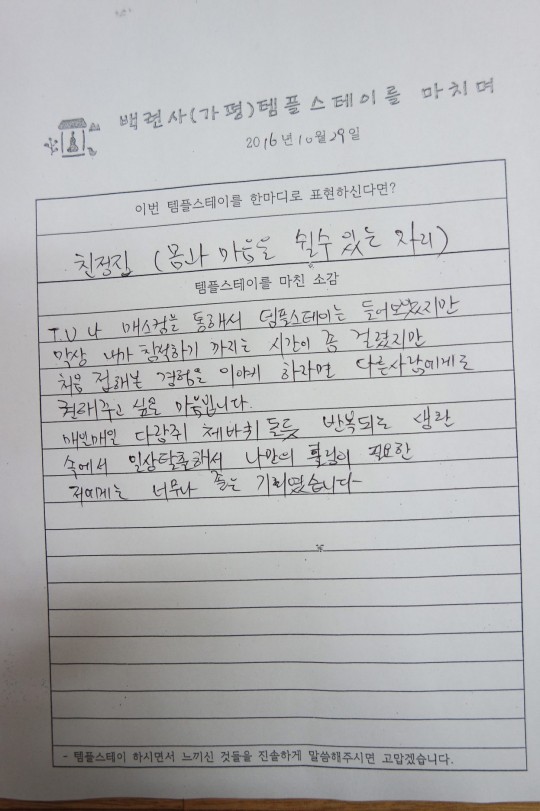 백련사(가평)템플스테이를 마치며
2016년 10월 29일
이번 템플스테이를 한마디로 표현하신다면?
친정집 (몸과 마음을 쉴수 있는 자리)
템플스테이를 마친 소감
T.V 나 매스컴을 통해서 템플스테이는 들어보았지만
막상 내가 참석하기 까지는 시간이 좀 걸렸지만
처음 접해본 경험을 이야기 하라면 다른사람에게로
권해주고 싶은 마음입니다.
매일매일 다람쥐 체바퀴 돌듯 반복되는 생활
속에서 일상탈출해서 나만의 힐링이 필요한
저에게는 너무나 좋은 기회였습니다-
- 템플스테이 하시면서 느끼신 것들을 진솔하게 말씀해주시면 고맙겠습니다.